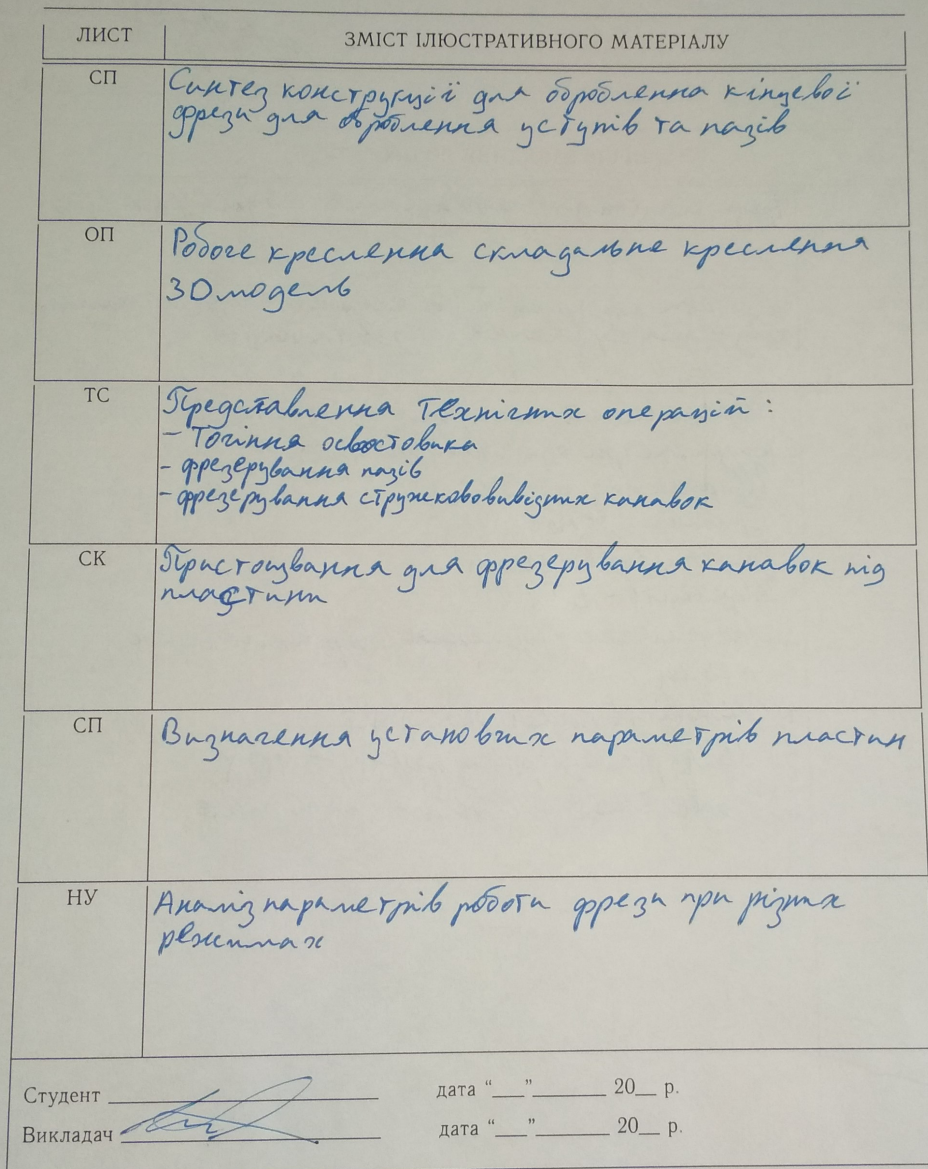 ЛИСТ ЗМІСТ ІЛЮСТРАТИВНОГО МАТЕРІАЛУ
СП Синтез конструкції для оброблення кінцевої
фрези для оброблення уступів та пазів
ОП Робоче креслення складальне креслення
3D модель
ТС Представлення технічних операцій :
- Точіння освостовика
- фрезерування пазів
- фрезерування стружкововивідних канавок
СК Пристошвання для фрезерування канавок під
пластини
СП Визначення установчих параметрів пластин
НУ Аналіз параметрів роботи фрези при різних
режимах
Студент ____ дата “__”____ 20__ р.
Викладач ____ дата “__”____ 20__ р.